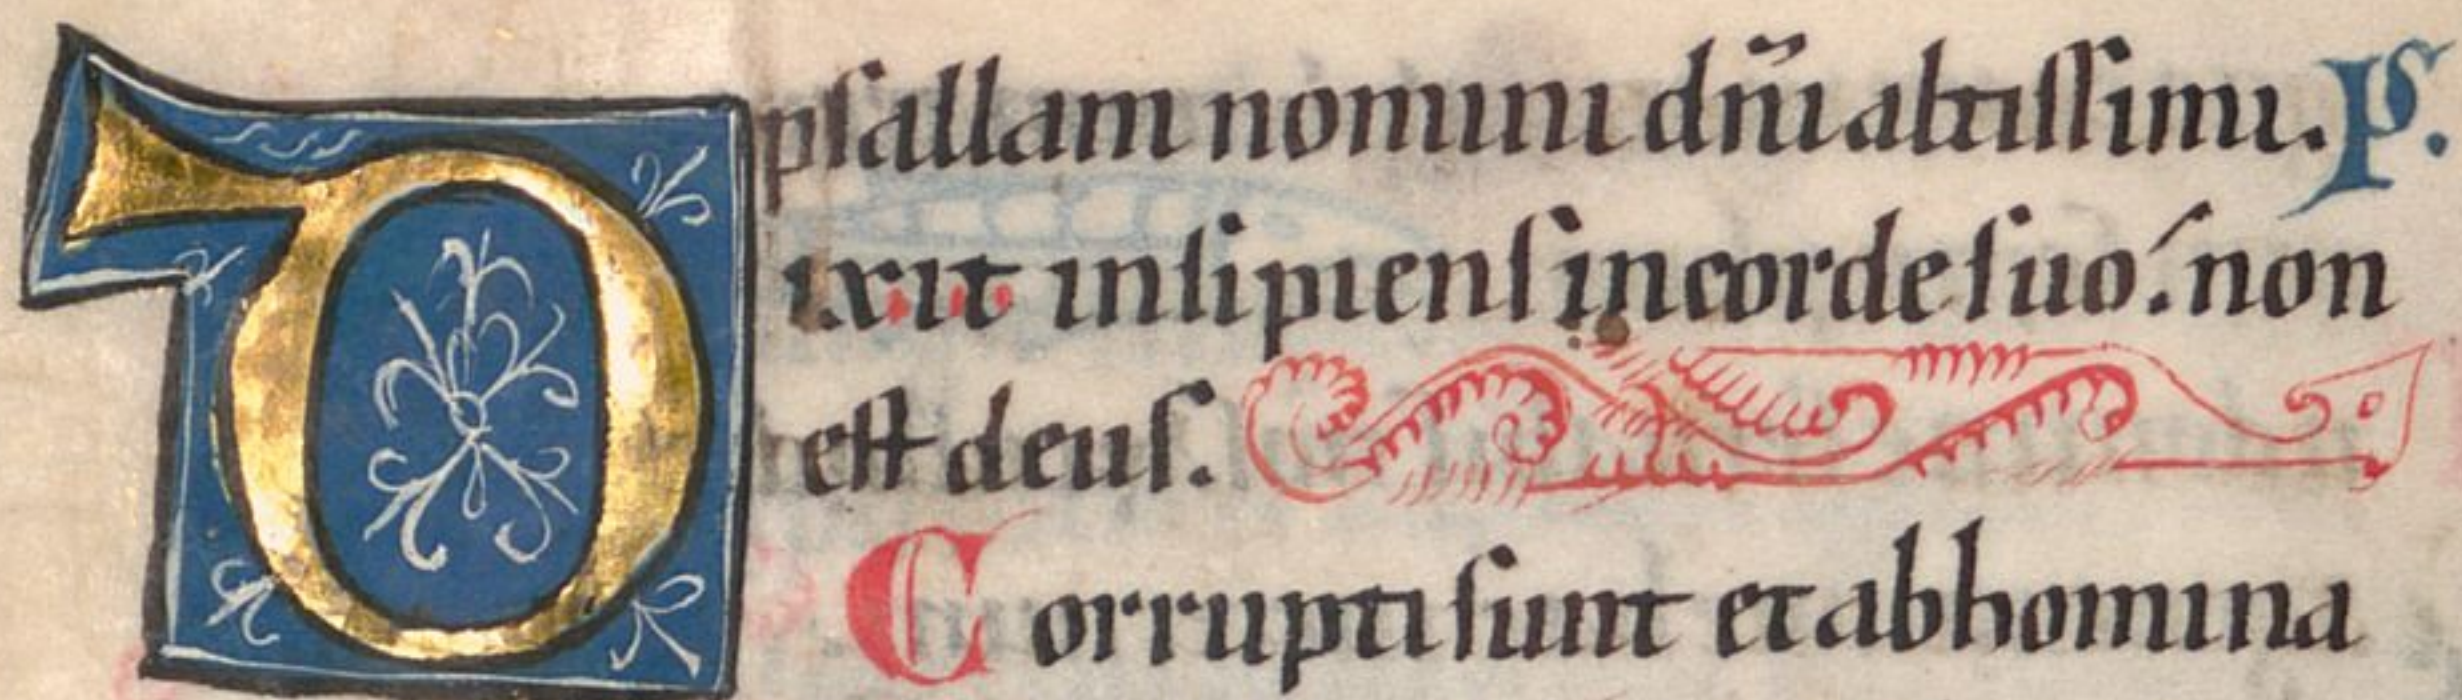 psallam nomini dñi altissimi. ps.
Dixit insipiens in corde suo: non
est deus.
Corrupti sunt et abhomina